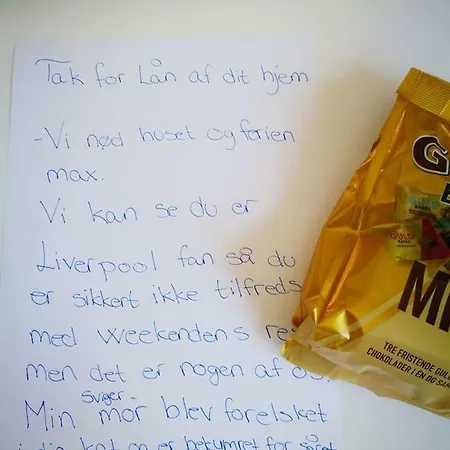 Tak for Lån af dit hjem
-Vi nød huset og ferien
max.
Vi kan se du er
Liverpool fan så du
er sikkert ikke tilfreds
med weekendens res
men det er nogen af os.
Min svigermor blev forelsket
i din kat og er bekymret for
G
GULD
MI
TRE FRISTENDE GUL
CHOKOLADER I EN OG SA